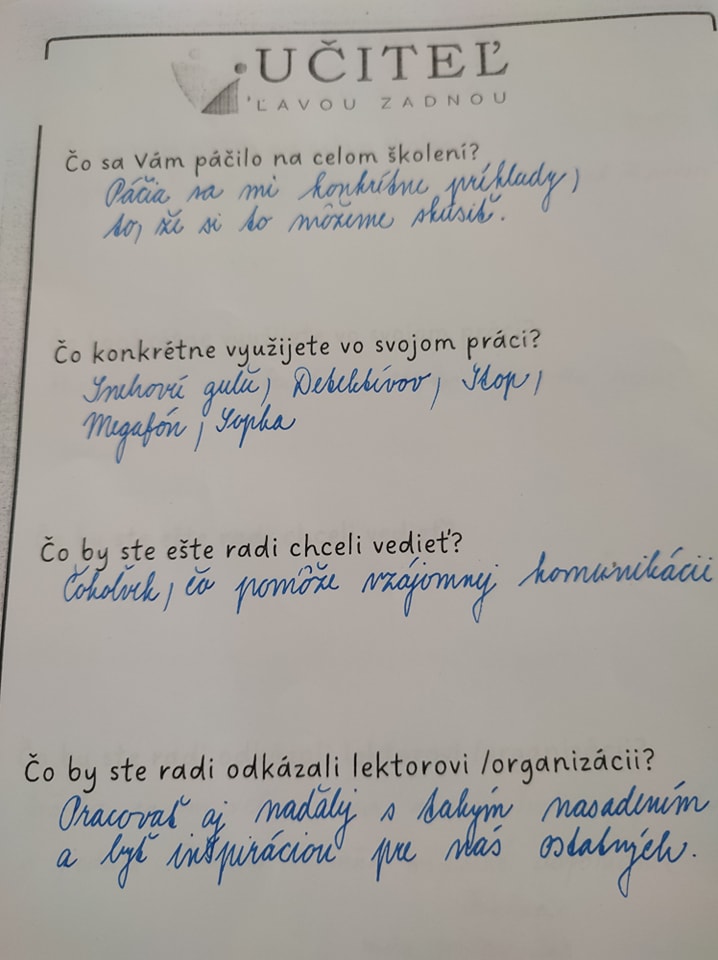 UČITEĽ
ĽAVOU ZADNOU
Čo sa Vám páčilo na celom školení?
Páčia sa mi konkrétne príklady,
to, že si to môžeme skúsiť.
Čo konkrétne využijete vo svojom práci?
Snehové gule, Detektívov, Stop,
Megafón, Sopka
Čo by ste ešte radi chceli vedieť?
Čokoľvek, čo pomôže vzájomnej komunikácii
Čo by ste radi odkázali lektorovi /organizácii?
Pracovať aj naďalej s takým nasadením
a byť inšpiráciou pre nás ostatných.